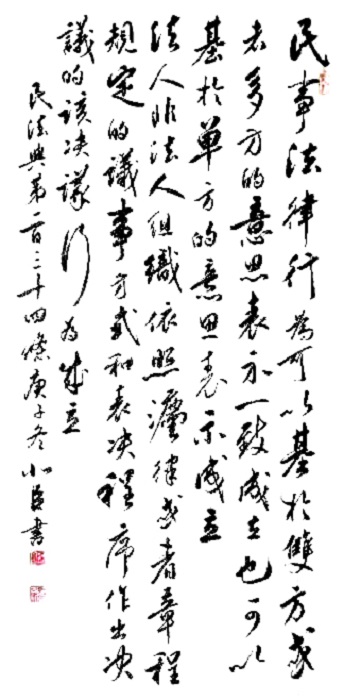 民事法律行為可以基於雙方或
者多方的意思表示一致成立也可以
基於單方的意思表示成立
法人非法人組織依照灋律或者章程
規定的議事方式和表决程序作出决
議的該决議行為成立
民法典第一百三十四條庚子冬書